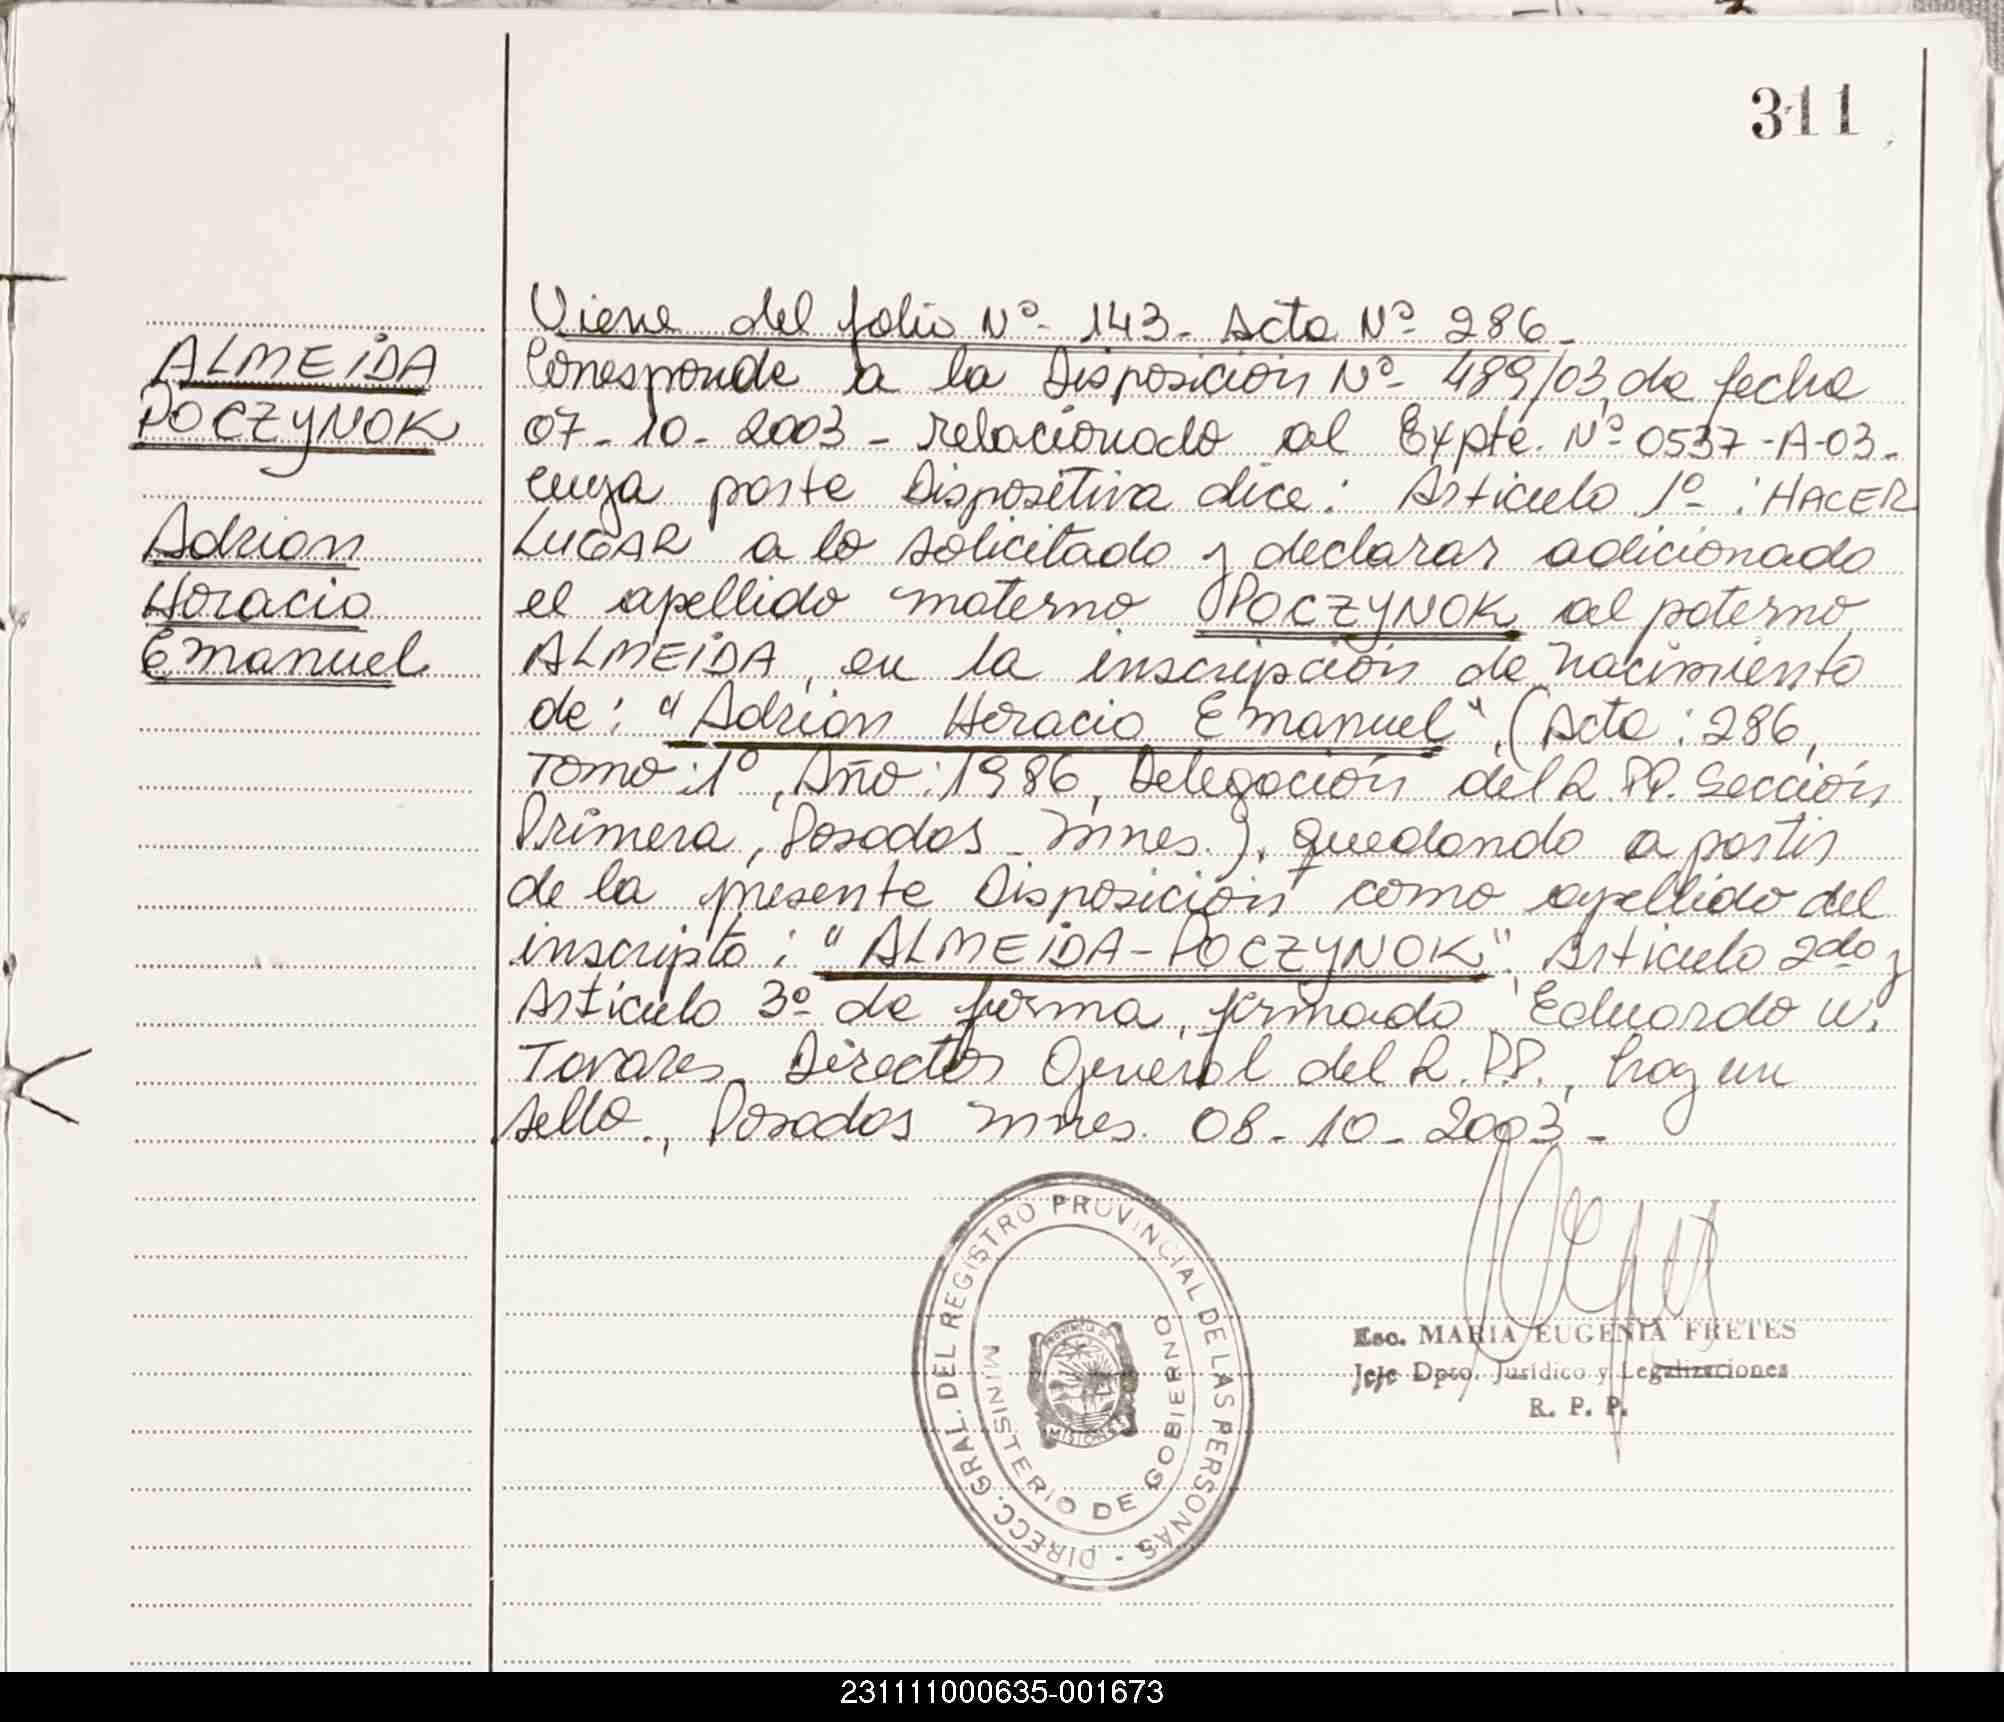 311
ALMEIDA
POCZYNOK
Adrian
Horacio
Emanuel
Viene del folio Nº 143- Acta Nº 286-
Corresponde a la Disposición Nº 489/03, de fecha
07-10-2003- relacionado al Expte. Nº 0537-A-03-
cuya parte Dispositiva dice: Artículo 1º: HACER
LUGAR a lo solicitado y declarar adicionado
el apellido materno POCZYNOK al paterno
ALMEIDA, en la inscripción de nacimiento
de: "Adrian Horacio Emanuel", (Acta: 286,
Tomo: 1º, Año: 1986, Delegación del R.PP. Sección
Primera, Posadas - Mnes.), quedando a partir
de la presente Disposición como apellido del
inscripto: "ALMEIDA-POCZYNOK". Artículo 2do y
Artículo 3º de forma, firmado Eduardo W.
Tavares Director General del R.P.P., hay un
sello., Posadas Mnes. 08-10-2003-
DIRECC. GRAL. DEL REGISTRO PROVINCIAL DE LAS PERSONAS -
MINISTERIO DE GOBIERNO
PROVINCIA DE
MISIONES
Esc. MARIA EUGENIA FRETES
Jefe Dpto. Jurídico y Legalizaciones
R. P. P.
231111000635-001673